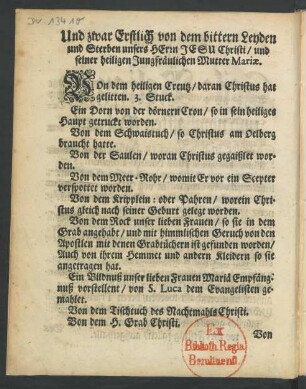 Dv. 1341⁰
Und zwar Erstlich von dem bittern Leyden
und Sterben unsers HErrn JESU Christi / und
seiner heiligen Jungfräulichen Mutter Mariæ.
VOn dem heiligen Creutz / daran Christus hat
gelitten. 3. Stuck.
Ein Dorn von der dörnern Cron / so in sein heiliges
Haupt getruckt worden.
Von dem Schwaistuch / so Christus am Oelberg
braucht hatte.
Von der Saulen / woran Christus gegaißlet wor-
den.
Von dem Meer-Rohr / womit Er vor ein Scepter
verspottet worden.
Von dem Kripplein : oder Pahren / worein Chri-
stus gleich nach seiner Geburt gelegt worden.
Von dem Rock unser lieben Frauen / so sie in dem
Grab angehabt / und mit himmlischen Geruch von den
Apostlen mit denen Grabtüchern ist gefunden worden /
Auch von ihrem Hemmet und andern Kleidern so sie
angetragen hat.
Ein Bildnuß unser lieben Frauen Mariä Empfäng-
nuß vorstellent / von S. Luca dem Evangelisten ge-
mahlet.
Von dem Tischtuch des Nachtmahls Christi.
Von dem H. Grab Christi.
Von
Ex
Biblioth. Regia
Berolinensi